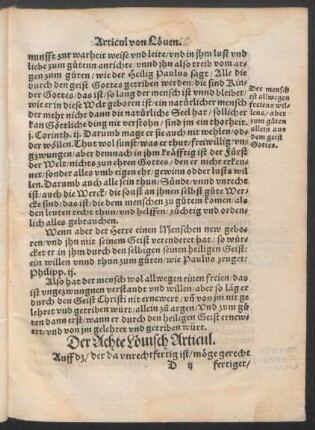 Articul von Löuen.
nunfft zur warheit weise vnd leite/ vnd in jhm lust vnd
liebe zum gůtenn anrichte/ vnnd jhn also treib vom ar-
gen zum gůten/ wie der Heilig Paulus sagt/ Alle die
durch den geist Gottes getriben werden/ die sind Kin-
der Gottes/ das ist/ so lang der mensch ist vnnd bleibet/
wie er in diese Welt geboren ist/ ein natürlicher mensch
der mehr nicht dann die natürliche Seel hat/ sollicher
kan Göttliche ding nit verstohn/ sind jm ein thorheit.
j. Corinth. ij. Darumb mage er sie auch nit wehlen/ od-
der wöllen. Thut wol sunst/ was er thut/ freiwillig/ vn-
gzwungen/ aber demnach in jhm kräfftig ist der Fürst
der Welt/ nichts zur ehren Gottes/ den er nicht erken-
net/ sonder alles vmb eigen ehr/ gewinn odder lusts wil
len. Darumb auch alle sein thun/ Sünde/ vnnd vnrecht
ist/ auch die Werck/ die sunst an jhnen selbst gůte Wer-
cke sind/ das ist/ die dem menschen zu gůtem komen/ als
den leuten recht thun/ vnd helffen/ züchtig vnd ordenn-
lich alles gebrauchen.
Der mensch
ist allwegen
freiens wil-
lens/ aber
zum gůten
allein aus
dem geist
Gottes.
Wenn aber der Herre einen Menschen new gebo-
ren/ vnd jhn mit seinem Geist verenderet hat/ so wür-
cket er in jhm durch den selbigen seinen heiligen Geist/
ein willen vnnd thun zum gůten/ wie Paulus zeuget/
Philipp. ij.
Also hat der mensch wol allwegen einen freien/ das
ist vngezwungnen verstandt vnd willen/ aber so läg er
durch den Geist Christi nit ernewert/ vň von jm nit ge
lehret vnd getriben würt/ allein zum argen/ Vnd zum gů
ten dann erst/ wann er durch den heiligen Geist ernew
ert/ vnd von jm gelehret vnd getriben würt.
Der Achte Löuisch Articul.
Auff dz/ der da vnrechtfertig ist/ möge gerecht
D ij fertiger/